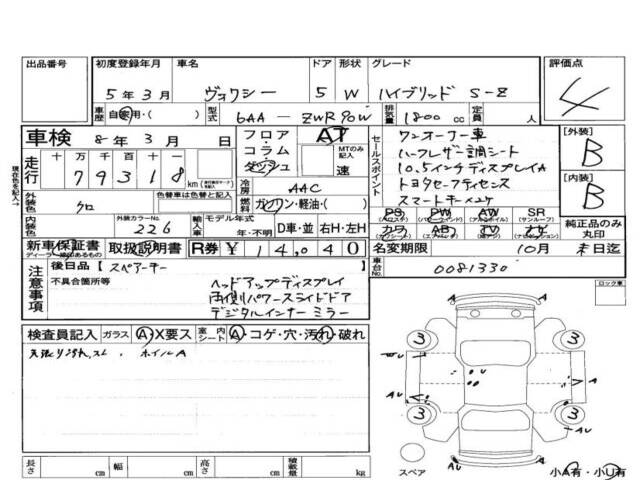 出品番号 初度登録年月 車名 ドア 形状 グレード 評価点
5年3月 ヴォクシー 5 W ハイブリッド S-Z 4
車歴 自家用・( ) 型式 6AA-ZWR90W 排気量 1800cc 定員 人
車検 8年3月 日 フロア AT セールスポイント ワンオーナー車 [外装] B
コラム MTのみ記入 ハーフレザー調シート
走行 十万千百十一 ダッシュ 速 10.5インチディスプレイA
79318 km 冷房 AAC トヨタセーフティセンス [内装] B
外装色 クロ 色替車は色替と記入 燃料 ガソリン・軽油・( ) スマートキー×ケ
PS PW AW SR
内装色 外装カラーNo. 226 輸入車 モデル年式 年・不明 D車・並 右H・左H カワ AB TV ナビ 純正品のみ丸印
新車保証書 取扱説明書 R券 ¥14,040 名変期限 10月末日迄
ディーラー印のあるもの
注意事項 後日品【スペアキー 車台No. 0081330
不具合箇所等 ヘッドアップディスプレイ ロック車
両側パワースライドドア
デジタルインナーミラー
検査員記入 ガラス A・X要ス 室内シート A・コゲ・穴・汚れ・破れ
ホイルA
3 3
AU A
AU A
3 3
AU A
長さ cm 幅 cm 高さ cm 積載量 kg スペア 小A有・小U有